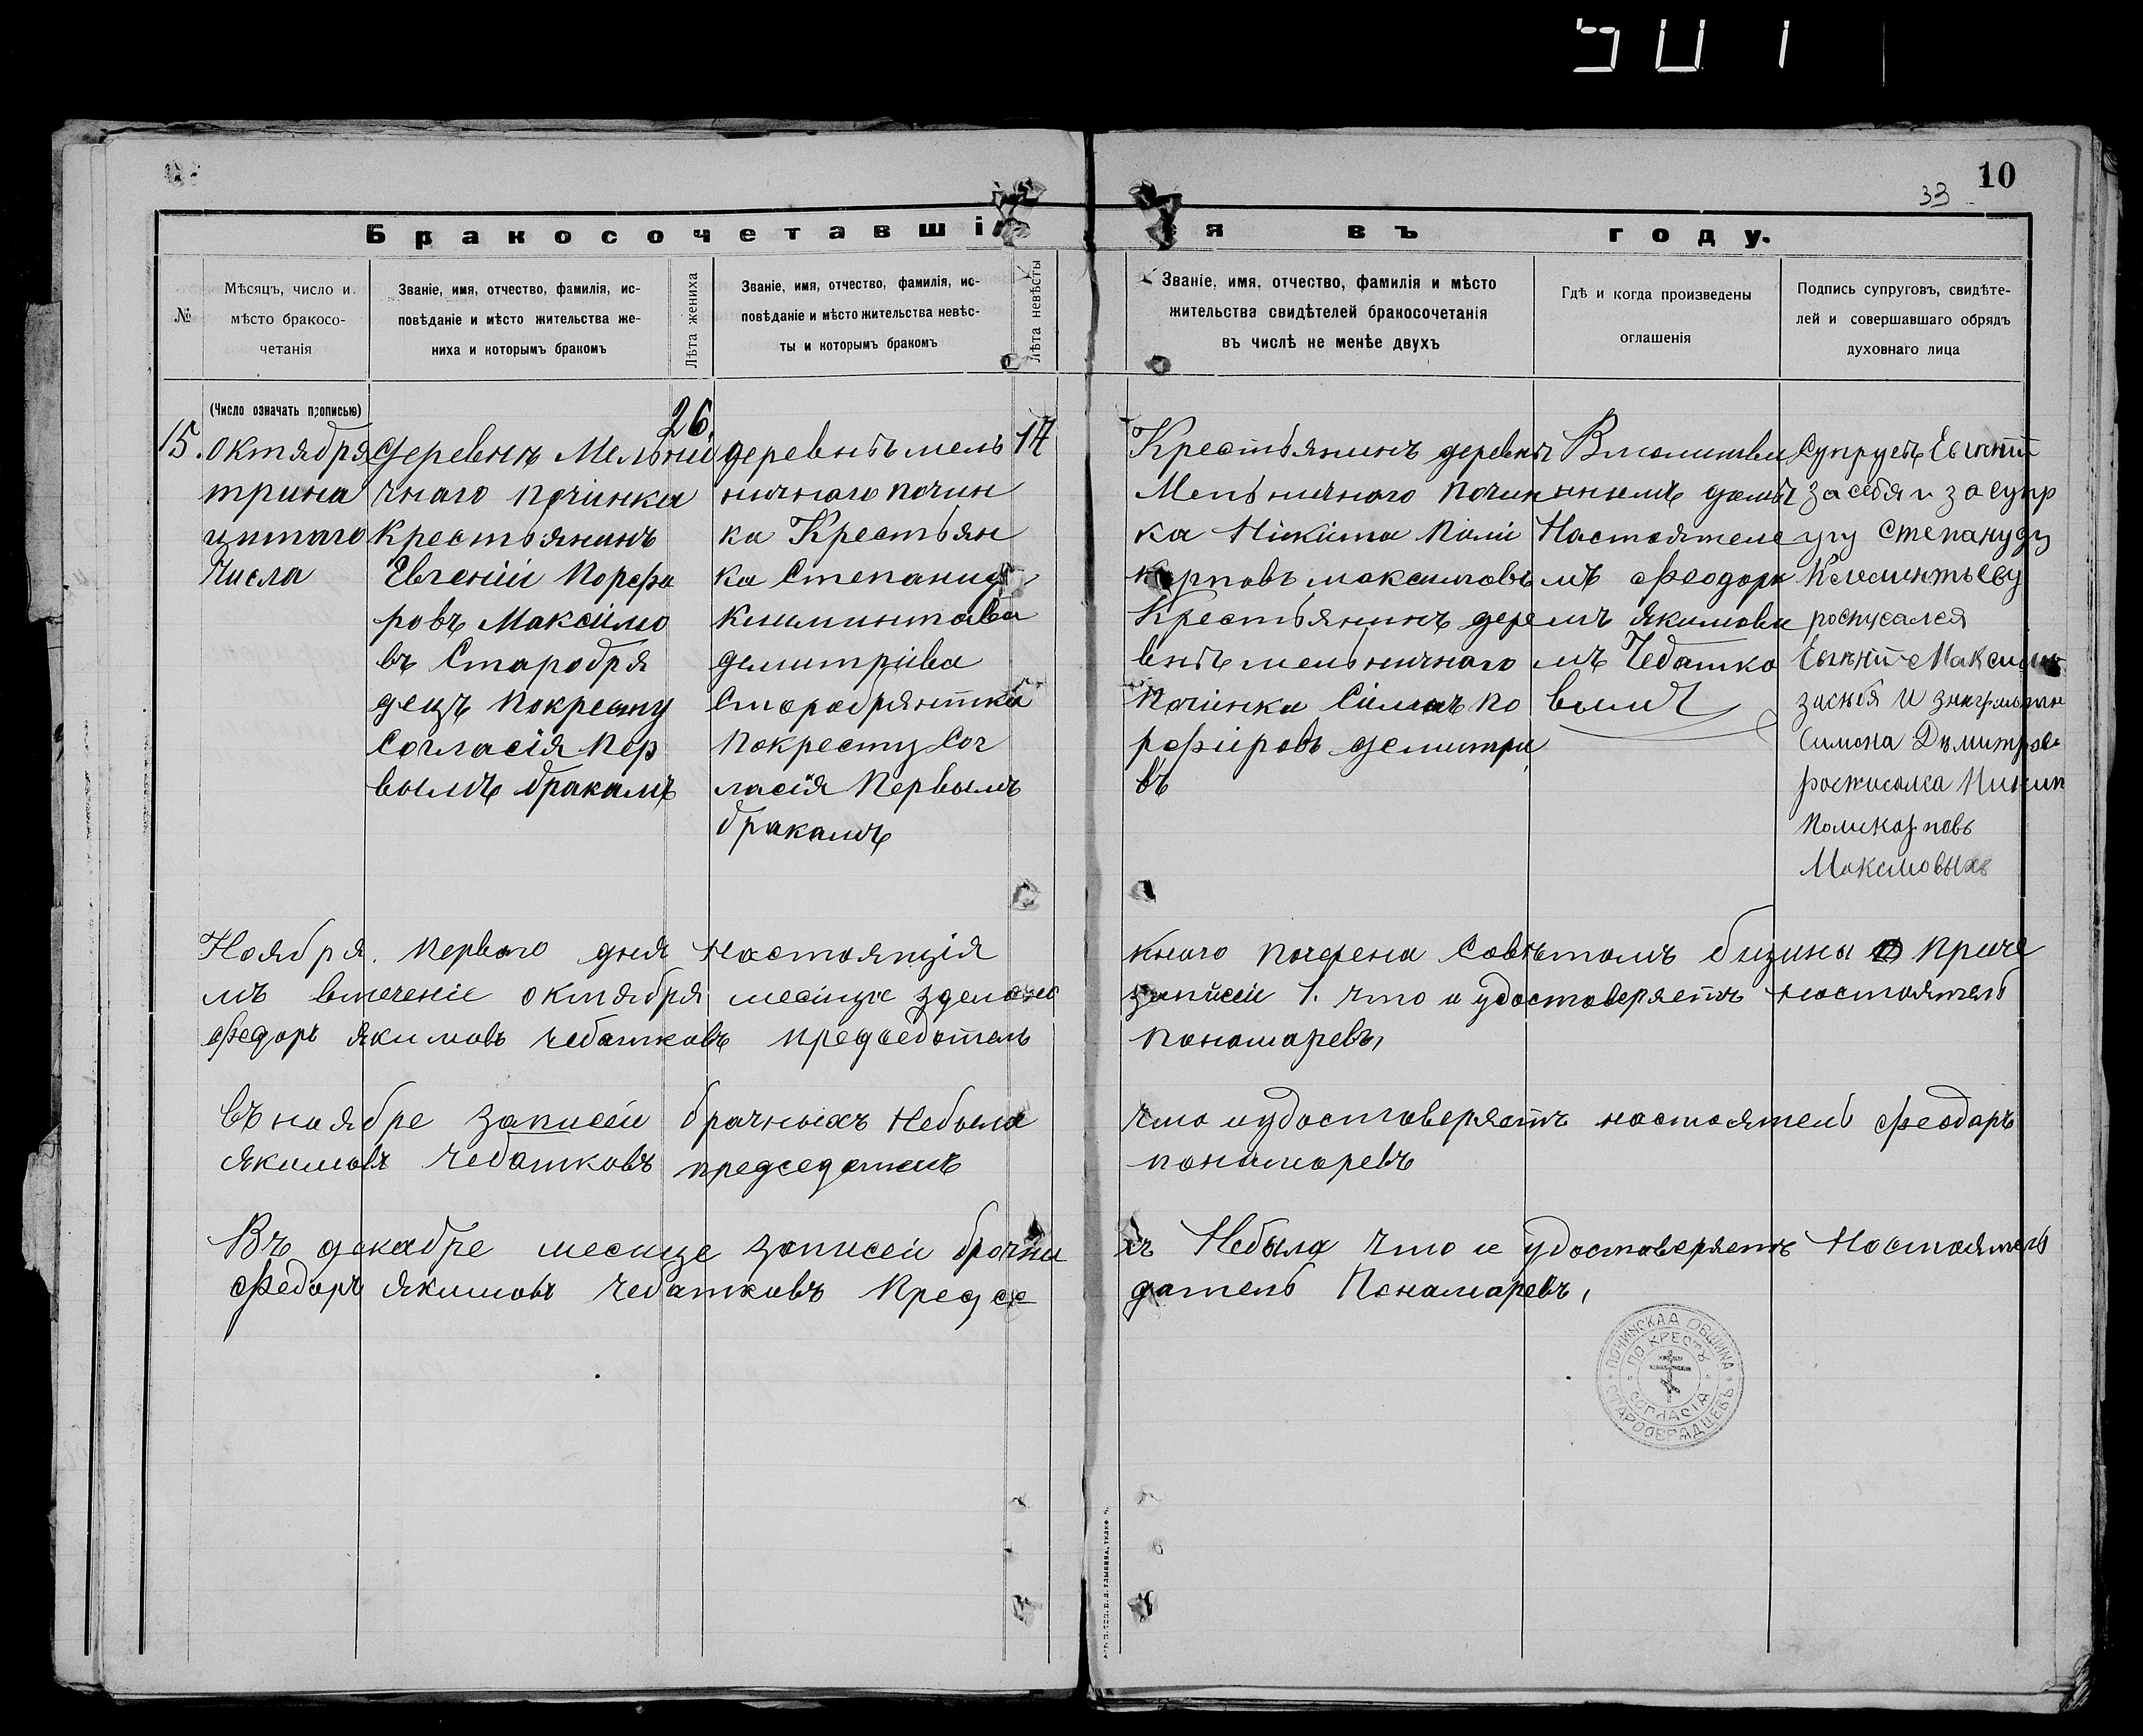 10
33
Бракосочетавшіеся въ году.
№
Мѣсяцъ, число и
мѣсто бракосо-
четанія
Званіе, имя, отчество, фамилія, ис-
повѣданіе и мѣсто жительства же-
ниха и которымъ бракомъ
Лѣта жениха
Званіе, имя, отчество, фамилія, ис-
повѣданіе и мѣсто жительства невѣс-
ты и которымъ бракомъ
Лѣта невѣсты
Званіе, имя, отчество, фамилія и мѣсто
жительства свидѣтелей бракосочетанія
въ числѣ не менѣе двухъ
Гдѣ и когда произведены
оглашенія
Подпись супруговъ, свидѣте-
лей и совершавшаго обрядъ
духовнаго лица
(Число означать прописью)
15.
октября
трина
цтаго
Числа
деревнѣ Мельни
чнаго починка
крестьянинъ
Евгеніи Порфи
ровъ Максімо
въ Старобря
децъ покресту
Согласія пер
вымъ бракамъ
26.
деревнѣ мель
ничнаго почин
ка Крестьян
ка Степанид
Климинтава
демитріва
Старобрятка
покресту Сог
ласія Первымъ
бракамъ
17
Крестьянинъ деревнѣ
Мельничнаго почин
ка Нікіта Полі
карповъ максимовъ
Крестьянинъ дере
внѣ мельничнаго
Почінка Сімонъ по
рфіровъ демитри
въ
Вмолитви
нномъ домѣ
Настоятеле
мъ Феодоро
мъ якимови
мъ Чебатко
вымъ
Супругъ Евгній
за себя и за супр
угу Степаниду
Клементьеву
роспусался
Евгній Максимъ
Симона Димитров
росписалса
Поликарповъ
Максмовыхъ
Ноября. первого дня настоящія книго поверена Совѣтомъ бизина причё
мъ втеченіе октября месіце зделонно запйсеи 1. что и удостоверяетъ настоятель
Федоръ якимовъ чебатковъ председатель понамаревъ,
въ ноябре записеи брачныхъ небыла что иудостоверяетъ настоятель Феодоръ
якимовъ чебатковъ председатель понамаревъ
Въ декабре месице записеи брачны хъ Небыла что и удостоверяетъ Настоятель
Федоръ якимовъ чебатковъ Предсе датель Понамаревъ,
ПОЧИНСКАЯ ОБЩИНА
СТАРООБРЯДЦЕВЪ
ПО КРЕСТЪ
СОГЛАСІЯ